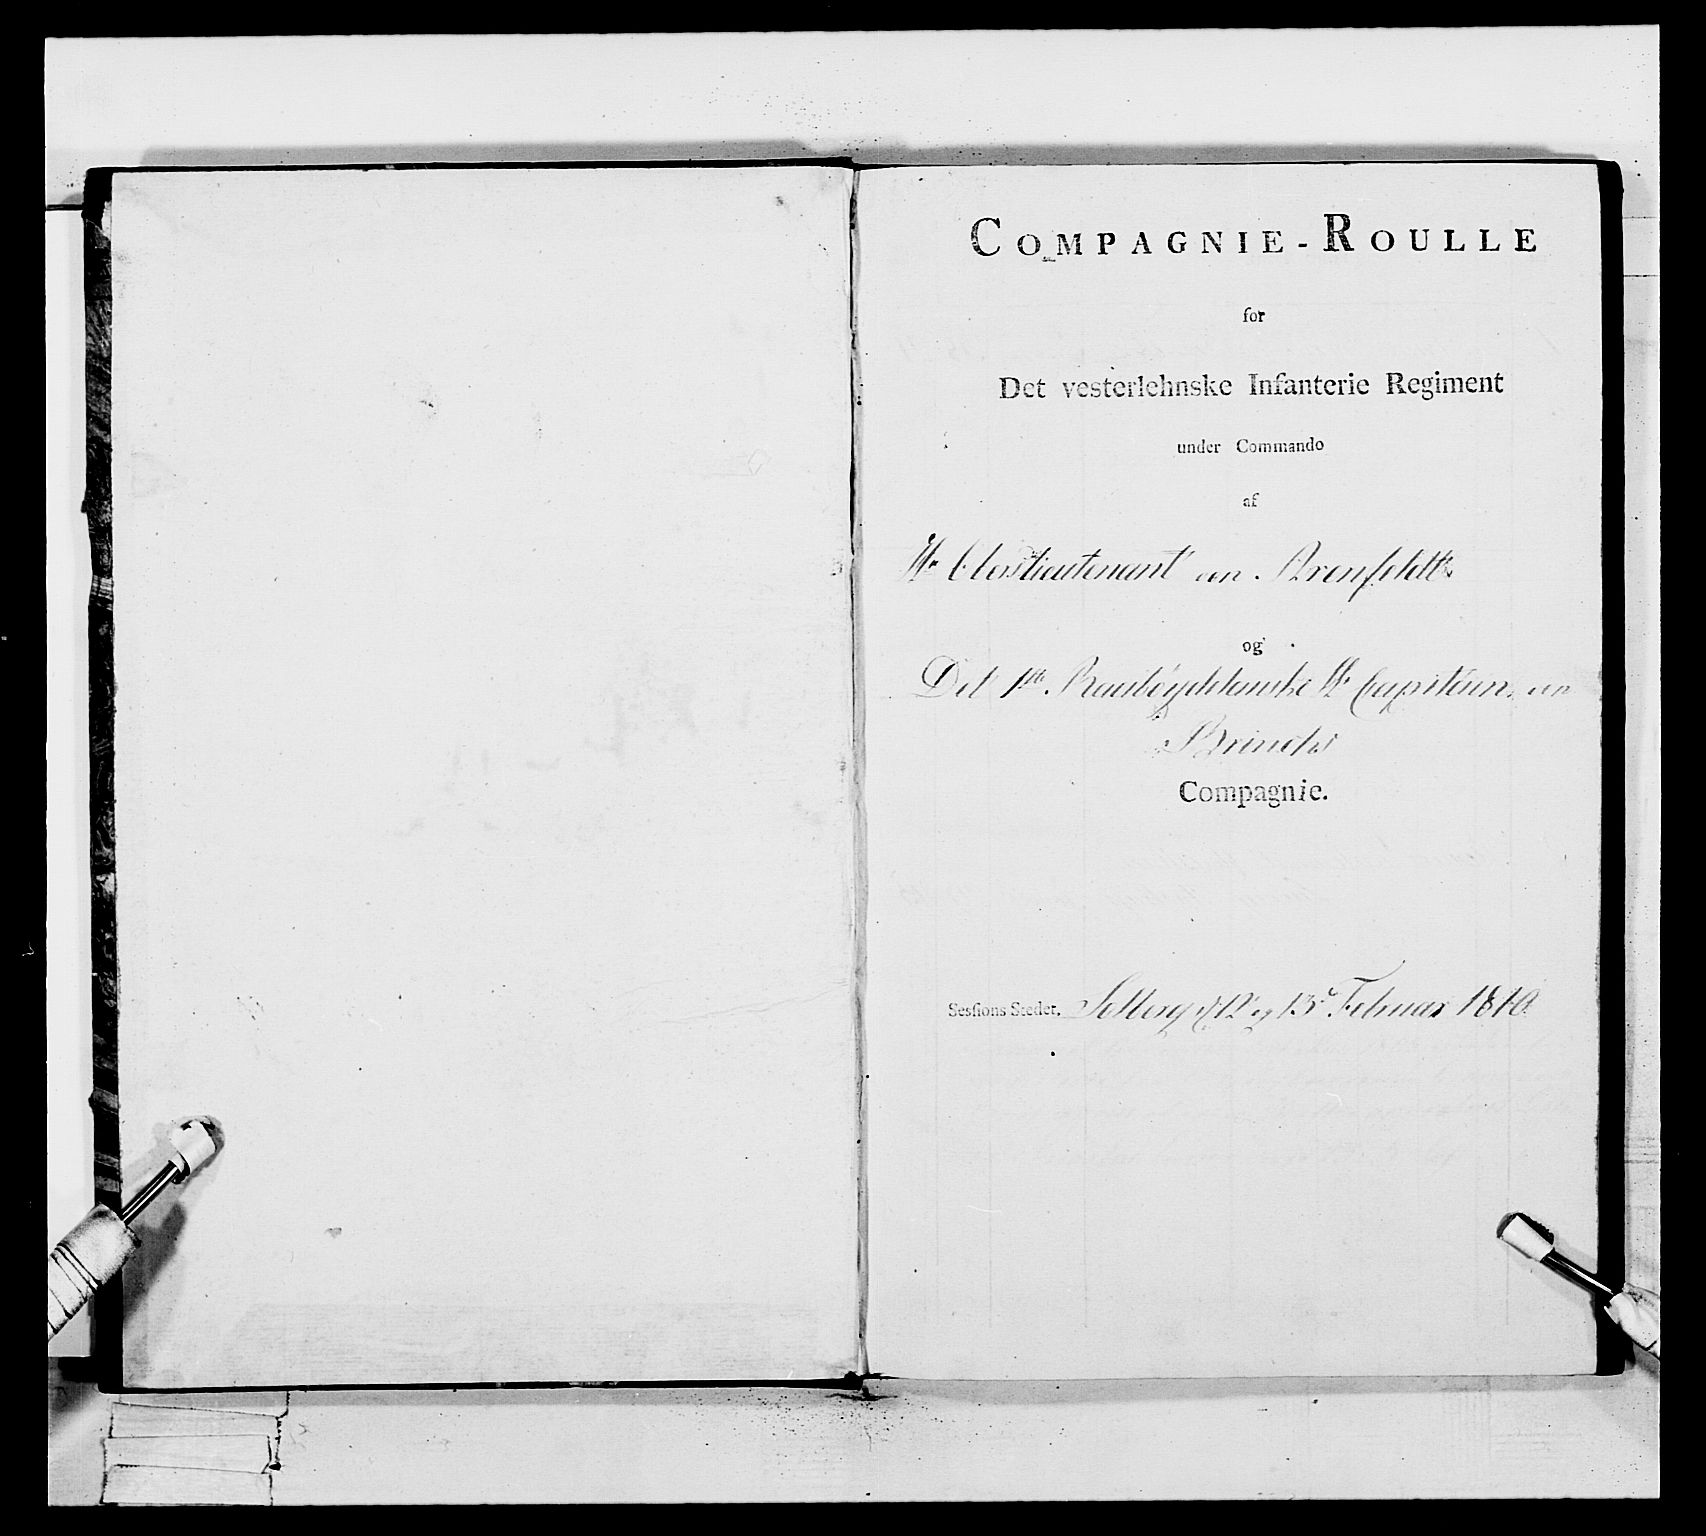 COMPAGNIE-ROULLE
for
Det vesterlehnske Infanterie Regiment
under Commando
af
Hr Oberstlieutenant von Arenfeldt
og
Det 1ste Raabøydelauske Hr Capitain von
Brinchs
Compagnie.
Sessions Steder, d 12 og 13de Februar 1810